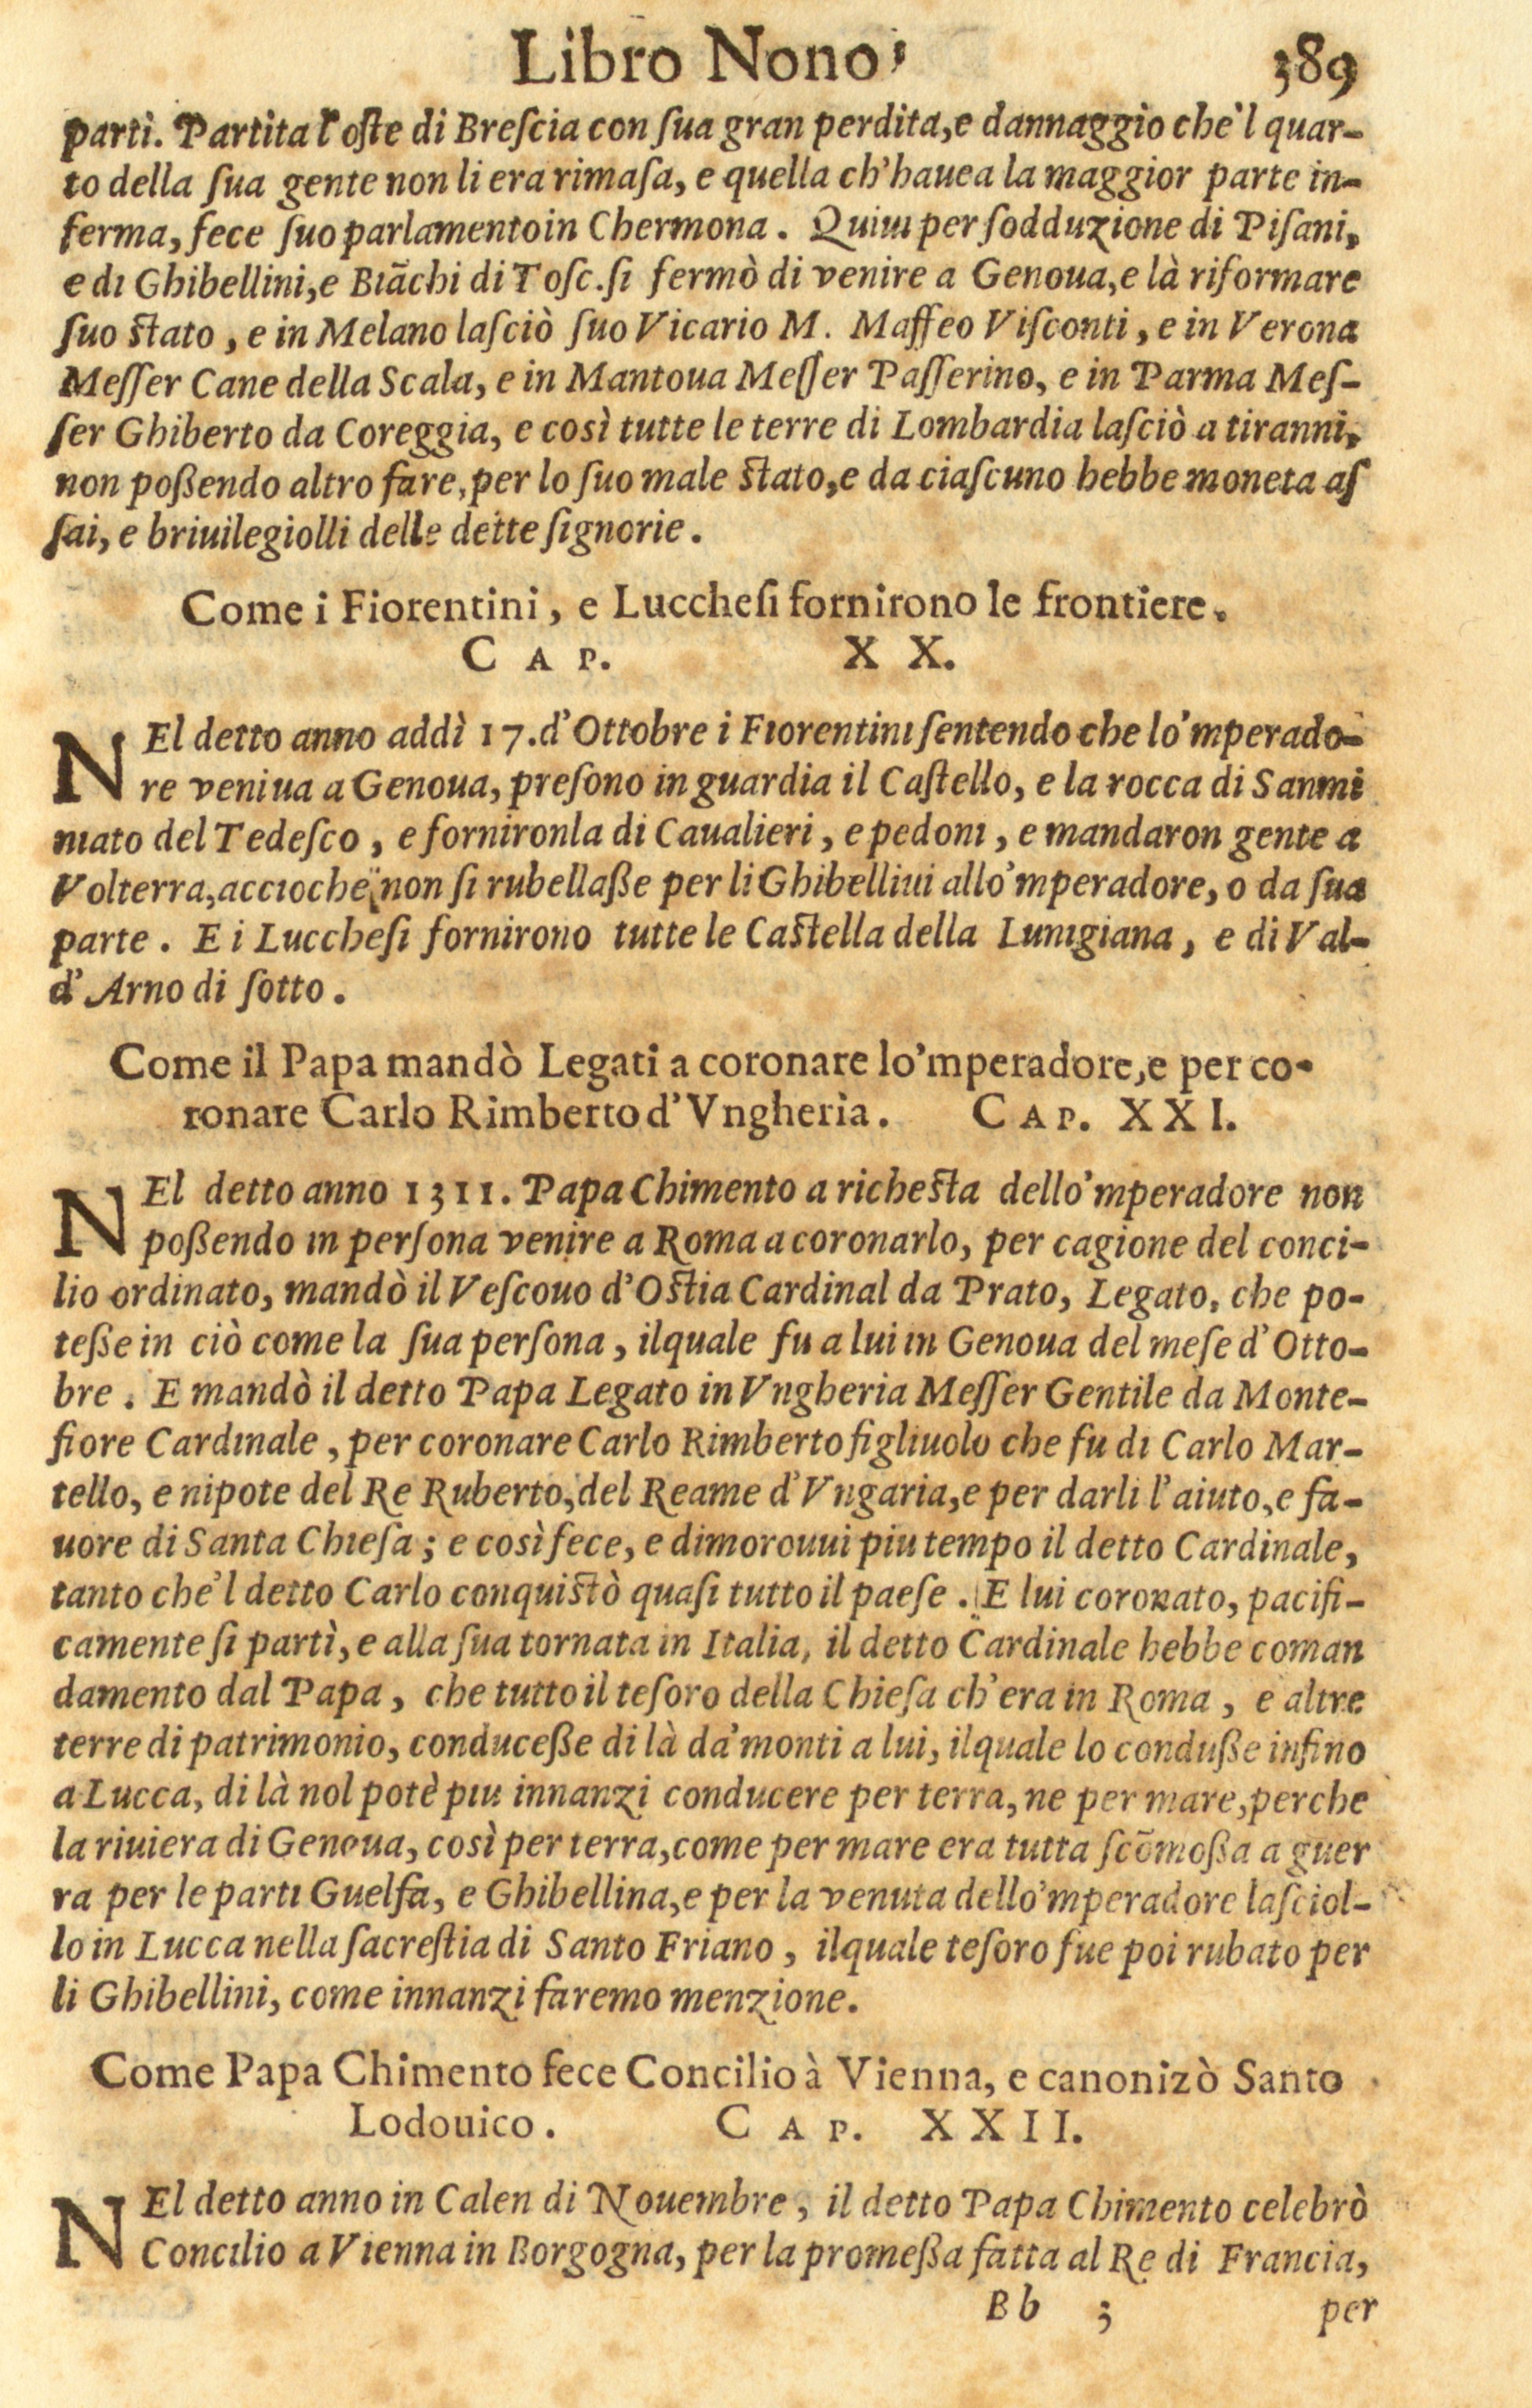 Libro Nono, 389
partì. Partita l'oſte di Breſcia con ſua gran perdita, e dannaggio che'l quar-
to della ſua gente non li era rimaſa, e quella ch'hauea la maggior parte in-
ferma, fece ſuo parlamento in Chermona. Quiui per ſodduzione di Piſani,
e di Ghibellini, e Biāchi di Toſc. ſi fermò di venire a Genoua, e là riformare
ſuo ſtato, e in Melano laſciò ſuo Vicario M. Maffeo Viſconti, e in Verona
Meſſer Cane della Scala, e in Mantoua Meſſer Paſſerino, e in Parma Meſ-
ſer Ghiberto da Coreggia, e così tutte le terre di Lombardia laſciò a tiranni,
non poßendo altro fare, per lo ſuo male ſtato, e da ciaſcuno hebbe moneta aſ
ſai, e briuilegiolli delle dette ſignorie.
Come i Fiorentini, e Luccheſi fornirono le frontiere.
CAP. XX.
NEl detto anno addì 17. d'Ottobre i Fiorentini ſentendo che lo'mperado-
re veniua a Genoua, preſono in guardia il Caſtello, e la rocca di Sanmi
niato del Tedeſco, e fornironla di Caualieri, e pedoni, e mandaron gente a
Volterra, accioche non ſi rubellaße per li Ghibellini allo'mperadore, o da ſua
parte. E i Luccheſi fornirono tutte le Caſtella della Lunigiana, e di Val-
d'Arno di ſotto.
Come il Papa mandò Legati a coronare lo'mperadore, e per co-
ronare Carlo Rimberto d'Vngheria. CAP. XXI.
NEl detto anno 1311. Papa Chimento a richeſta dello'mperadore non
poßendo in perſona venire a Roma a coronarlo, per cagione del conci-
lio ordinato, mandò il Veſcouo d'Oſtia Cardinal da Prato, Legato, che po-
teße in ciò come la ſua perſona, ilquale fu a lui in Genoua del meſe d'Otto-
bre. E mandò il detto Papa Legato in Vngheria Meſſer Gentile da Monte-
fiore Cardinale, per coronare Carlo Rimberto figliuolo che fu di Carlo Mar-
tello, e nipote del Re Ruberto, del Reame d'Vngaria, e per darli l'aiuto, e fa-
uore di Santa Chieſa; e così fece, e dimorouui piu tempo il detto Cardinale,
tanto che'l detto Carlo conquiſtò quaſi tutto il paeſe. E lui coronato, pacifi-
camente ſi partì, e alla ſua tornata in Italia, il detto Cardinale hebbe coman
damento dal Papa, che tutto il teſoro della Chieſa ch'era in Roma, e altre
terre di patrimonio, conduceße di là da'monti a lui, ilquale lo conduße infino
a Lucca, di là nol potè piu innanzi conducere per terra, ne per mare, perche
la riuiera di Genoua, così per terra, come per mare era tutta ſcōmoßa a guer
ra per le parti Guelfa, e Ghibellina, e per la venuta dello'mperadore laſciol-
lo in Lucca nella ſacreſtia di Santo Friano, ilquale teſoro fue poi rubato per
li Ghibellini, come innanzi faremo menzione.
Come Papa Chimento fece Concilio à Vienna, e canonizò Santo
Lodouico. CAP. XXII.
NEl detto anno in Calen di Nouembre, il detto Papa Chimento celebrò
Concilio a Vienna in Borgogna, per la promeßa fatta al Re di Francia,
Bb 3 per